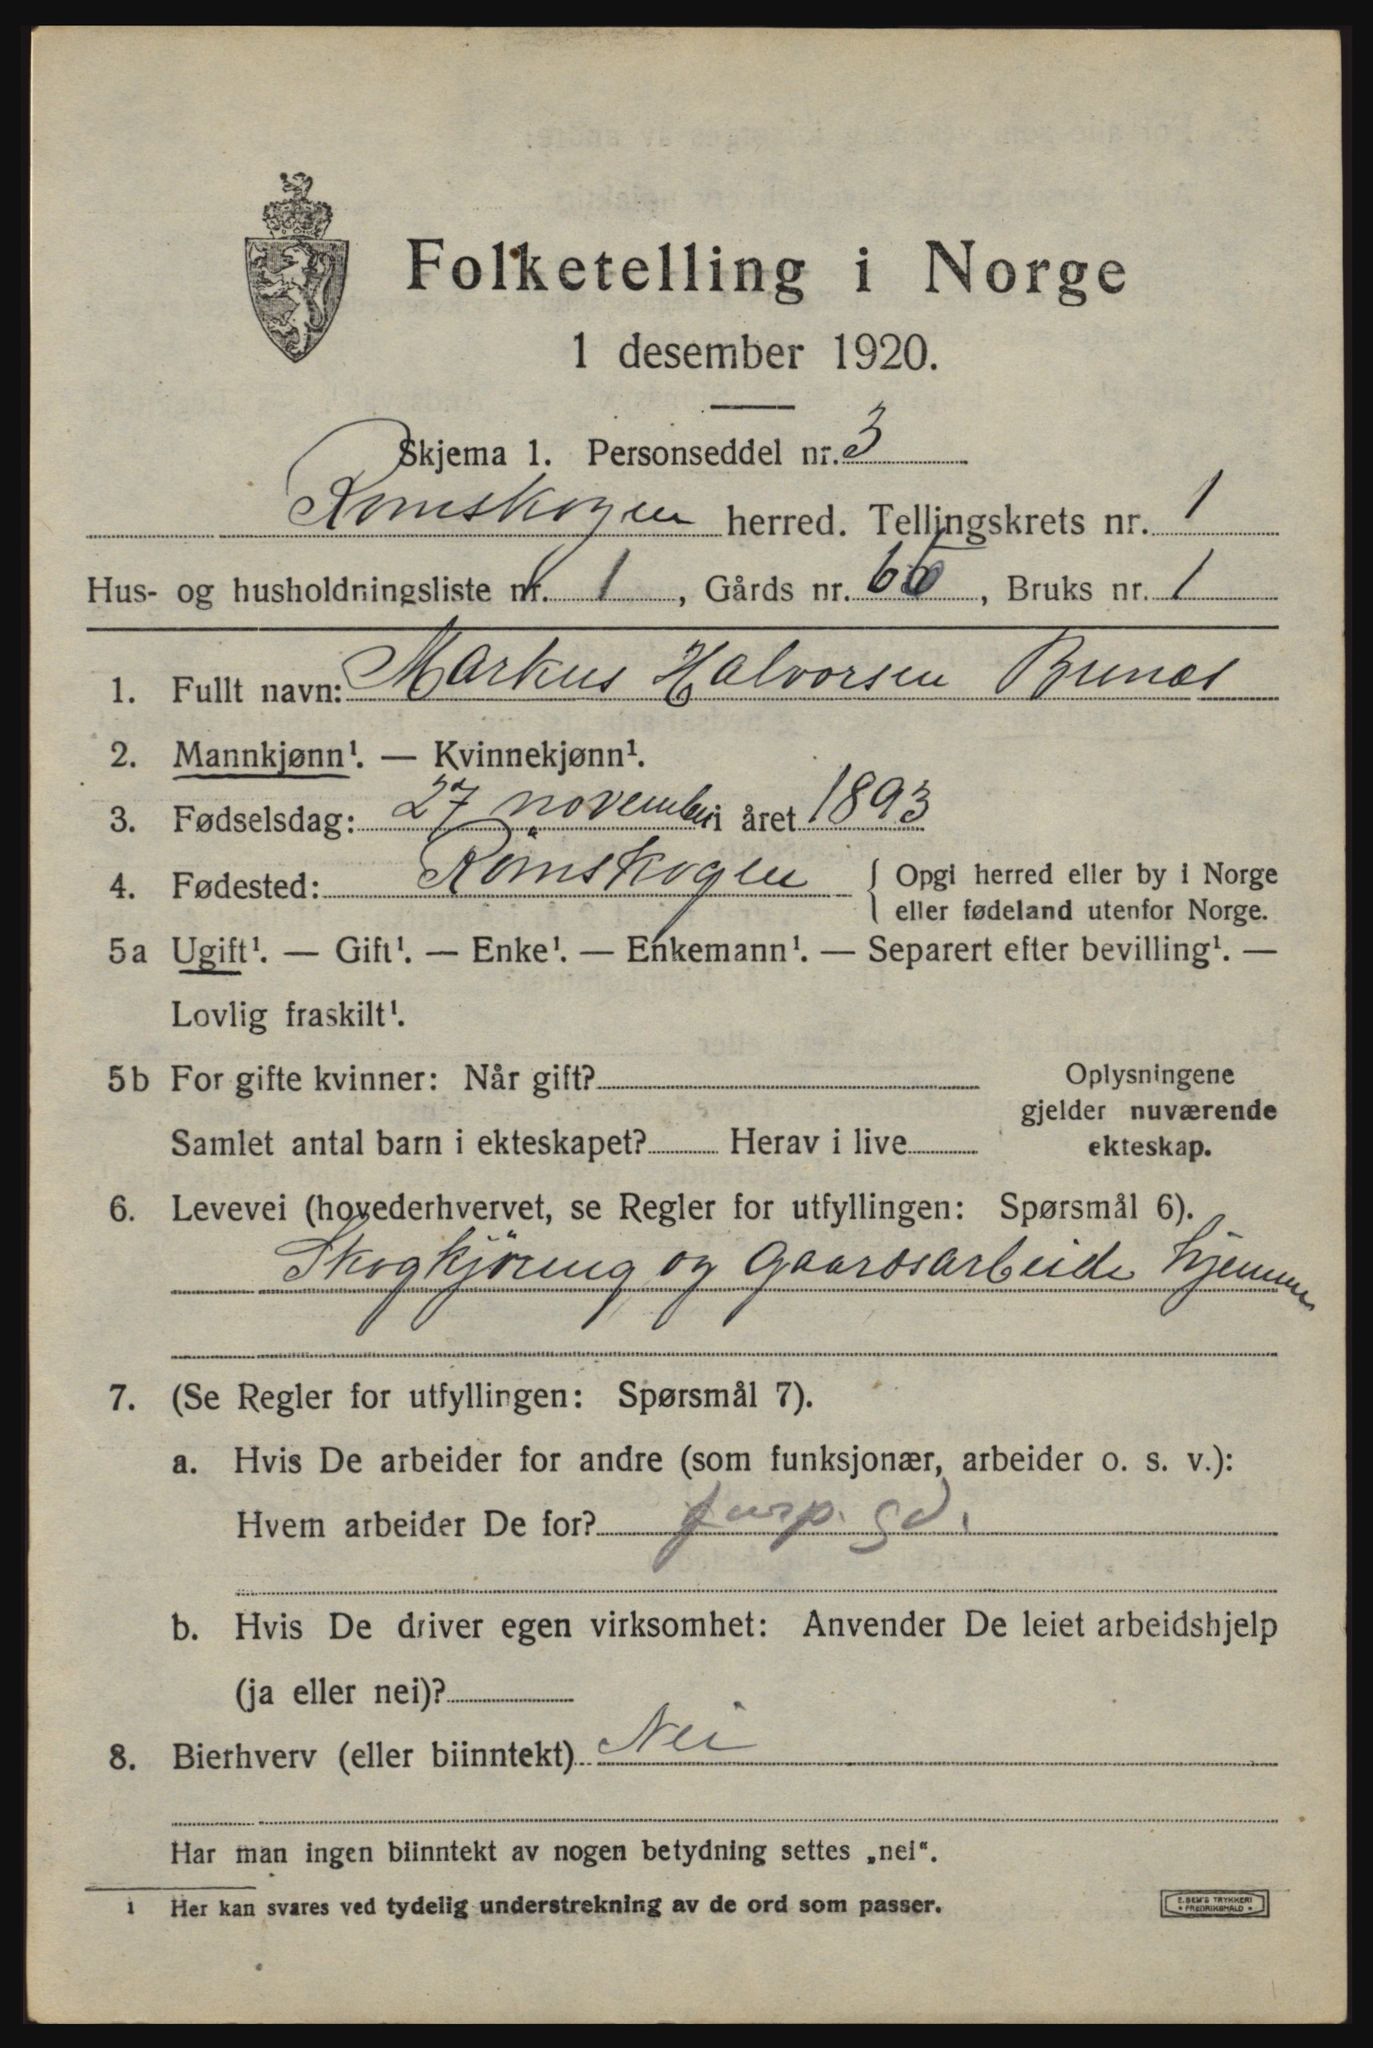 Folketelling i Norge
1 desember 1920.
Skjema 1. Personseddel nr. 3
Römskogen herred. Tellingskrets nr. 1
Hus- og husholdningsliste nr. 1, Gårds nr. 66, Bruks nr. 1
1. Fullt navn: Markus Halvorsen Bunes
2. Mannkjønn¹. — Kvinnekjønn¹.
3. Fødselsdag: 27 november i året 1893
4. Fødested: Römskogen { Opgi herred eller by i Norge
eller fødeland utenfor Norge.
5a Ugift¹. — Gift¹. — Enke¹. — Enkemann¹. — Separert efter bevilling¹. —
Lovlig fraskilt¹.
5b For gifte kvinner: Når gift? Oplysningene
gjelder nuværende
Samlet antal barn i ekteskapet? Herav i live ekteskap.
6. Levevei (hovederhvervet, se Regler for utfyllingen: Spørsmål 6).
Skogkjöring og Gaardsarbeide hjemme
7. (Se Regler for utfyllingen: Spørsmål 7).
a. Hvis De arbeider for andre (som funksjonær, arbeider o. s. v.):
Hvem arbeider De for? gd.
b. Hvis De driver egen virksomhet: Anvender De leiet arbeidshjelp
(ja eller nei)?
8. Bierhverv (eller biinntekt) Nei
Har man ingen biinntekt av nogen betydning settes „nei“.
1 Her kan svares ved tydelig understrekning av de ord som passer.
E. SEM'S TRYKKERI
• FREDRIKSHALD •